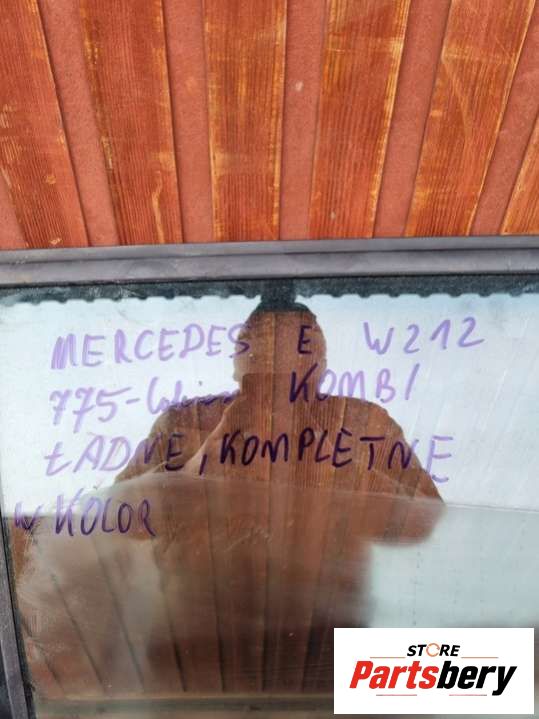 MERCEDES E W212
775- KOMBI
ŁADNE, KOMPLETNE
W KOLOR
STORE
Partsbery